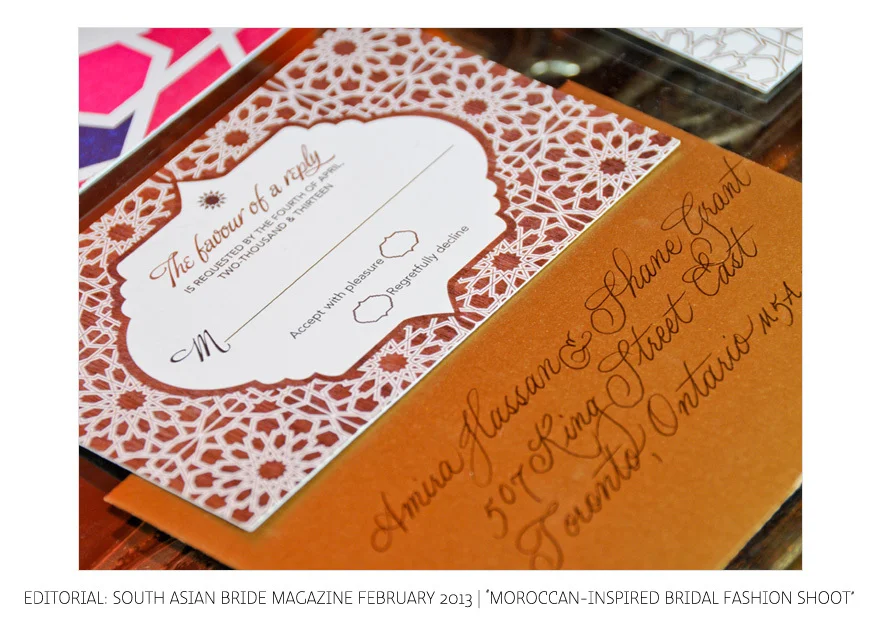 The favour of a reply
IS REQUESTED BY THE FOURTH OF APRIL,
TWO-THOUSAND & THIRTEEN
M
Accept with pleasure
Regretfully decline
Amira Hassan & Shane Grant
507 King Street East
Toronto, Ontario M5A
EDITORIAL: SOUTH ASIAN BRIDE MAGAZINE FEBRUARY 2013 | "MOROCCAN-INSPIRED BRIDAL FASHION SHOOT"